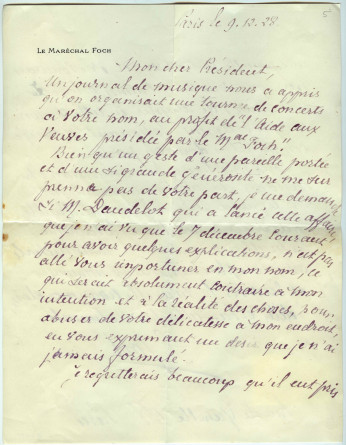 Paris le 9.12.28
5
LE MARÉCHAL FOCH
Mon cher Président,
Un journal de musique nous a appris
qu'on organisait une tournée de concerts
à votre nom, au profit de "l'Aide aux
Veuves présidée par le Mal Foch".
Bien qu'un geste d'une pareille portée
et d'une si grande générosité ne me sur
prenne pas de votre part, je me demande
si M. Dandelot qui a lancé cette affaire
que j'en ai vu que le 7 décembre courant
pour avoir quelques explications, n'est pas
allé vous importuner en mon nom, ce
qui serait absolument contraire à mon
intention et à la réalité des choses, pour
abuser de votre délicatesse à mon endroit,
en vous exprimant un désir que je n'ai
jamais formulé.
Je regretterais beaucoup qu'il eut pris